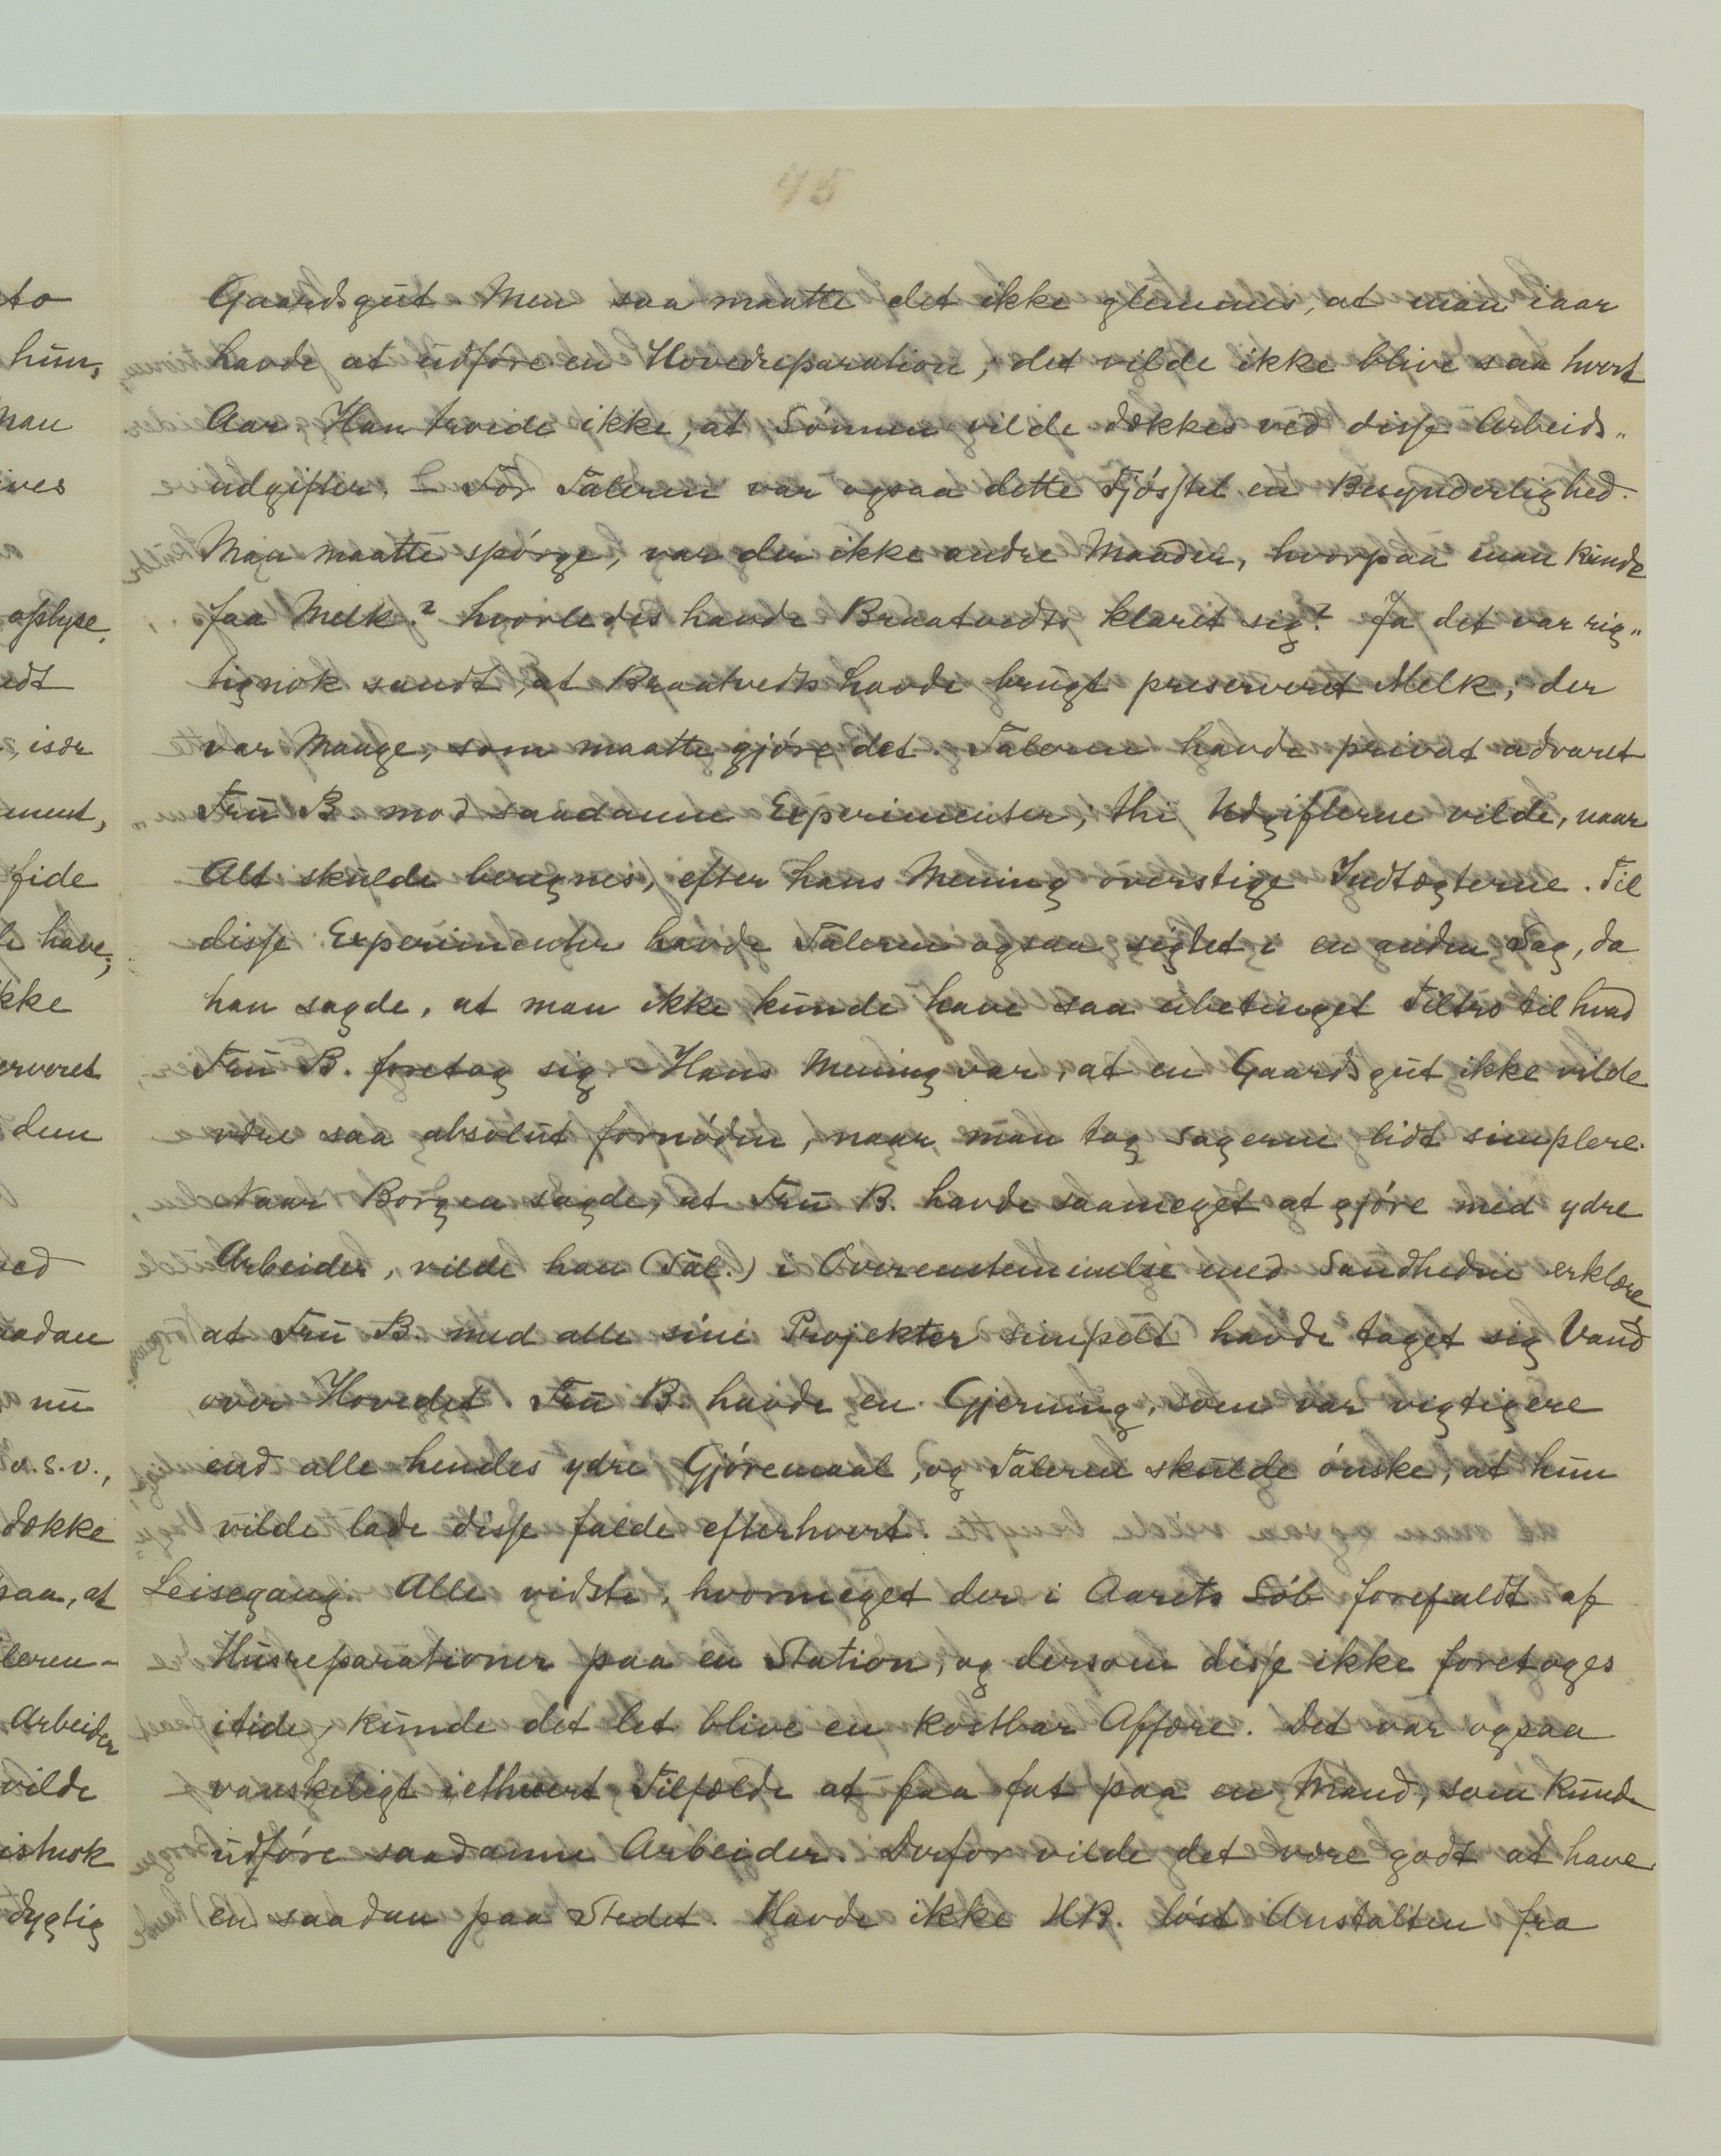 45
Gaardsgut. Men saa maatte det ikke glemmes, at man iaar
havde at udføre en Hovedreparation, det vilde ikke blive saa hvert
Aar. Han troede ikke, at Lønnen vilde dækkes ved disse Arbeids„
udgifter. – For Taleren var ogsaa dette Fjøsstel en Besynderlighed.
Man maatte spørge, var der ikke andre Maader, hvorpaa man kunde
faa Melk? hvorledes havde Braatvedts klaret sig? Ja det var rig„
tignok sandt, at Braatvedts havde brugt preserveret Melk, der
var Mange, som maatte gjøre det. Taleren havde privat advaret
Fru B. mod saadanne Experimenter, thi Udgifterne vilde, naar
Alt skulde beregnes, efter hans Mening overstige Indtægterne. Til
disse Experimenter havde Taleren ogsaa sigtet i en anden Sag, da
han sagde, at man ikke kunde have saa ubetinget Tiltro til hvad
Fru B. foretog sig. Hans Mening var, at en Gaardsgut ikke vilde
være saa absolut fornøden, naar man tog Sagerne lidt simplere.
Naar Borgen sagde, at Fru B. havde saameget at gjøre med ydre
Arbeider, vilde han (Tal.) i Overenstemmelse med Sandheden erklære
at Fru B. med alle sine Projekter simpelt havde taget sig Vand
over Hovedet. Fru B. havde en Gjerning, som var vigtigere
end alle hendes ydre Gjøremaal, og Taleren skulde ønske, at hun
vilde lade disse falde efterhvert.
Leisegang: Alle vidste, hvormeget der i Aarets Løb forefaldt af
Husreparationer paa en Station, og dersom disse ikke foretoges
itide, kunde det let blive en kostbar Affære. Det var ogsaa
vanskeligt iethvert Tilfælde at faa fat paa en Mand, som kunde
udføre saadanne Arbeider. Derfor vilde det være godt at have
en saadan paa Stedet. Havde ikke HB. løst Anstalten fra
to
hun,
man
ives
oplyse,
edt
, især
ment,
fide
have,
kke
erveret
dem
ved
aadan
nu
o.s.v.,
dække
saa, at
leren–
Arbeider
vilde
dygtig